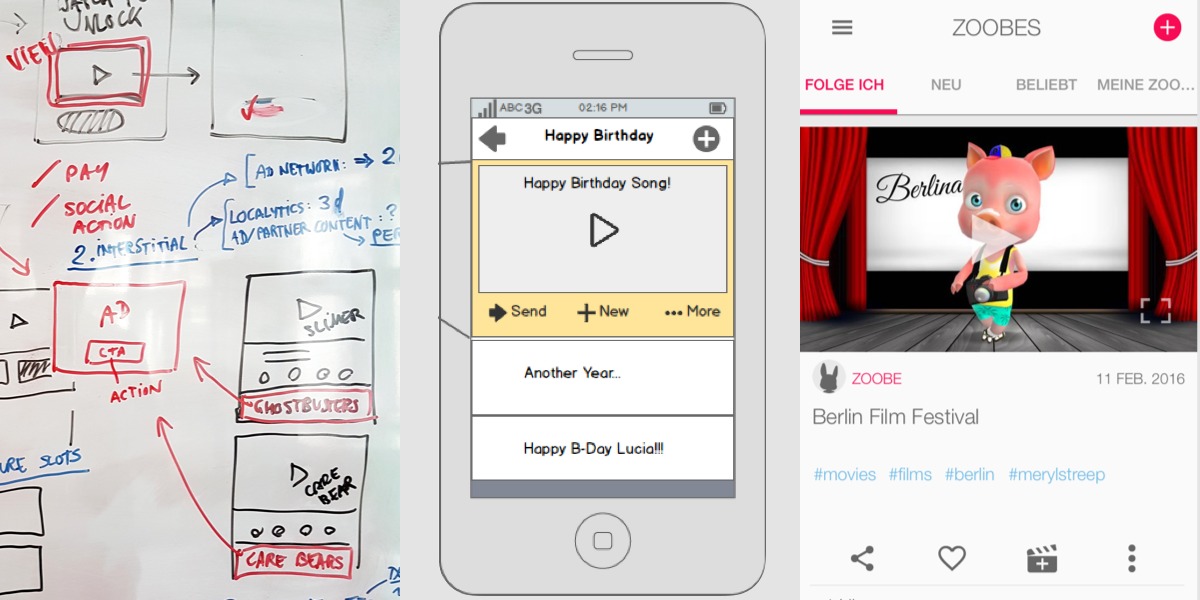 WATCH TO
UNLOCK
VIEW
/ PAY
/ SOCIAL
ACTION
2. INTERSTITIAL
AD NETWORK: ⇒ 2
LOCALYTICS: 3d
AD/PARTNER CONTENT: ?
PER
AD
CTA
ACTION
SLIMER
GHOSTBUSTERS
SLOTS
CARE
BEAR
CARE BEARS
ABC 3G 02:16 PM
Happy Birthday
Happy Birthday Song!
Send New More
Another Year...
Happy B-Day Lucia!!!
ZOOBES
FOLGE ICH NEU BELIEBT MEINE ZOO...
Berlina
ZOOBE 11 FEB. 2016
Berlin Film Festival
#movies #films #berlin #merylstreep